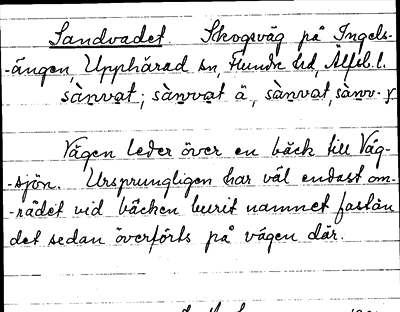 Sandvadet. Skogsväg på Ingels-
-ängen, Upphärad sn, Flundre hd, Älfsb. l.
sànvat; sànvat ä, sànvat, sànv-
Vägen leder över en bäck till Väg-
-sjön. Ursprungligen har väl endast om-
-rådet vid bäcken burit namnet fastän
det sedan överförts på vägen där.